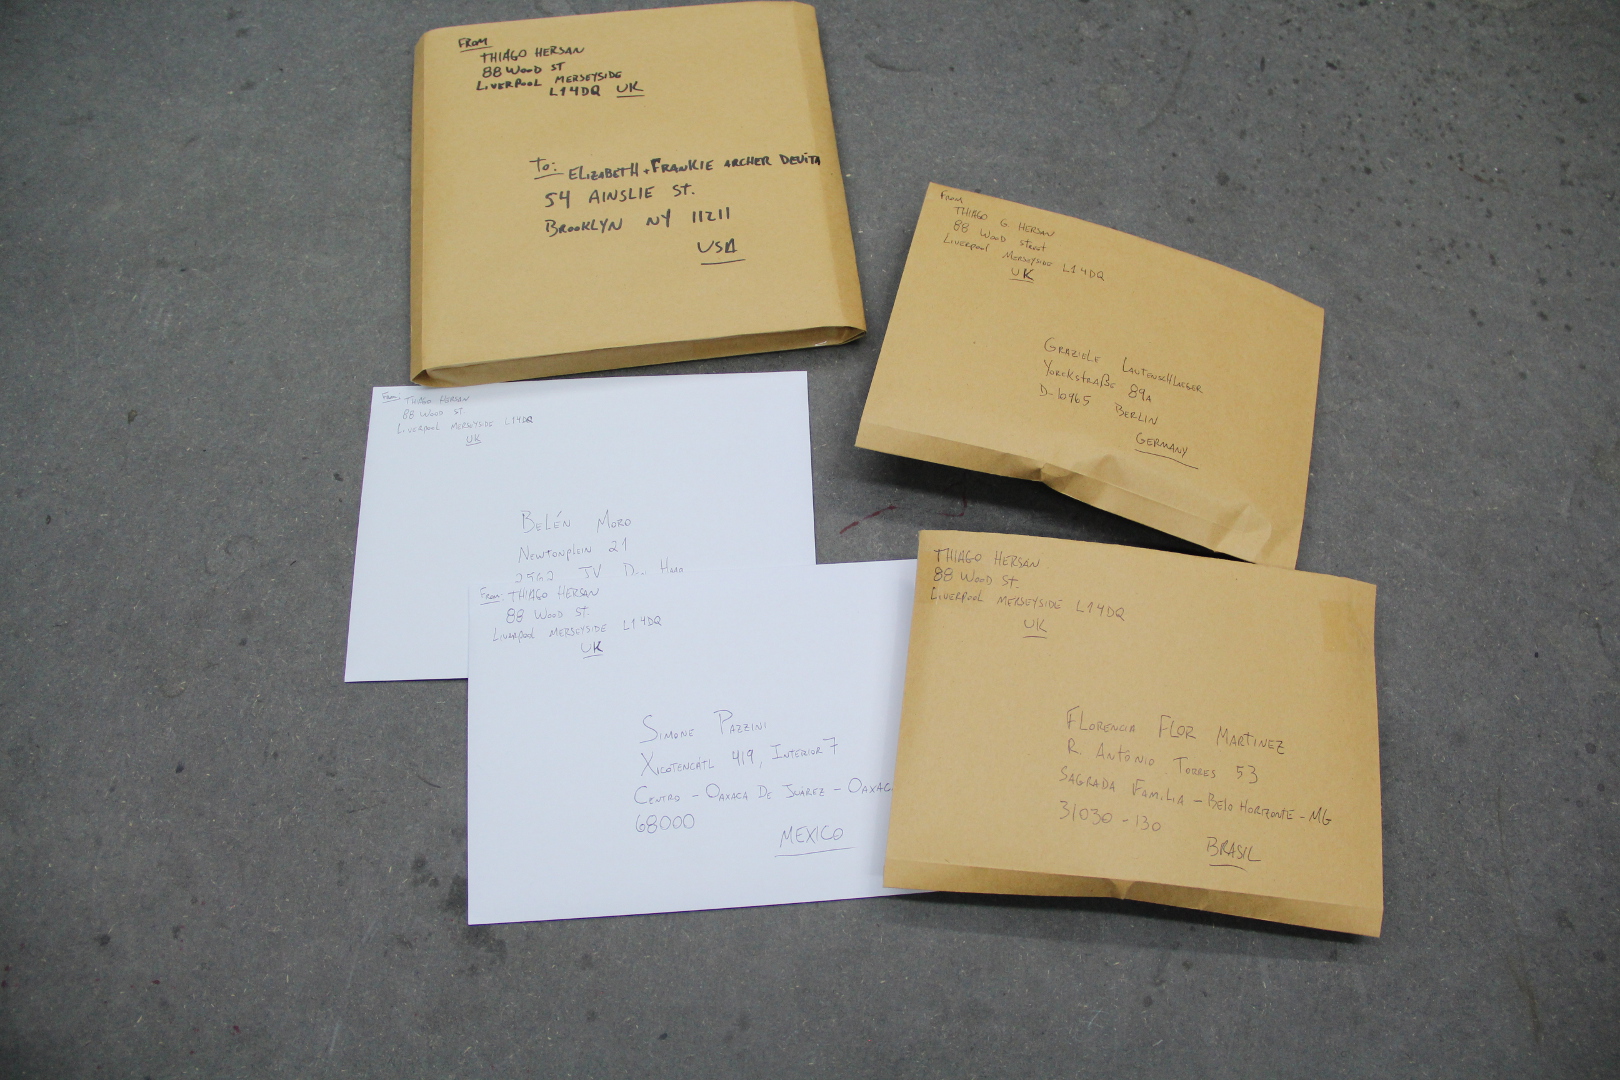 FROM
THIAGO HERSAN
88 WOOD ST
LIVERPOOL MERSEYSIDE
L14DQ UK
TO: ELIZABETH + FRANKIE ARCHER DEVITA
54 AINSLIE ST.
BROOKLYN NY 11211
USA
FROM
THIAGO G. HERSAN
88 WOOD STREET
LIVERPOOL MERSEYSIDE L14DQ
UK
GRAZIELE LAUTENSCHLAEGER
YORCKSTRAßE 89A
D-10965 BERLIN
GERMANY
FROM THIAGO HERSAN
88 WOOD ST
LIVERPOOL MERSEYSIDE L14DQ
UK
BELÉN MORO
NEWTONPLEIN 21
JV
FROM THIAGO HERSAN
88 WOOD ST.
LIVERPOOL MERSEYSIDE L14DQ
UK
SIMONE PAZZINI
XICOTENCÁTL 419, INTERIOR 7
CENTRO - OAXACA DE JUÁREZ - OAXAC
68000
MEXICO
THIAGO HERSAN
88 WOOD ST.
LIVERPOOL MERSEYSIDE L14DQ
UK
FLORENCIA FLOR MARTINEZ
R. ANTÔNIO TORRES 53
SAGRADA FAMILIA - BELO HORIZONTE - MG
31030-130
BRASIL